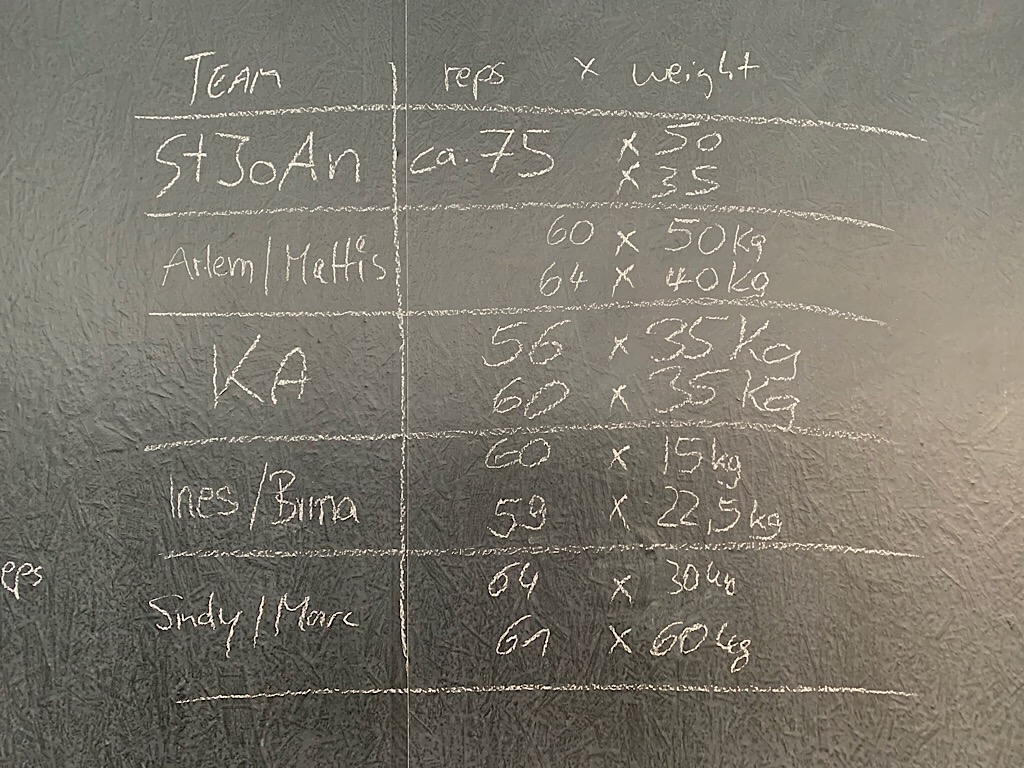 TEAM reps x weight
StJoAn ca. 75 x 50
x 35
Artem/Mattis 60 x 50kg
64 x 40kg
KA 56 x 35Kg
60 x 35Kg
Ines/Birna 60 x 15kg
59 x 22,5kg
eps
Sindy/Marc 64 x 30kg
61 x 60kg